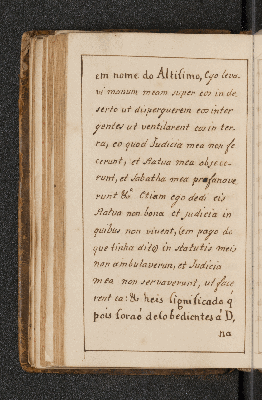 em nome do Altisimo, Ego leva-
vi manum meam super eos in de-
serto ut dispergerem eos inter
gentes ut ventilarent eos in ter-
ra, eo quod Judicia mea non fe-
cerunt, et statua mea abjece-
runt, et sabatha mea profanave
runt &c. Etiam ego dedi eis
statua non bona et judicia in
quibus non vivent, (em pago do
que tinha dito) in statutis meis
non ambulaverun, et Judicia
mea non servaverunt, ut face
rent ea: & heis significado q̃
pois foraõ desobedientes á D,
na